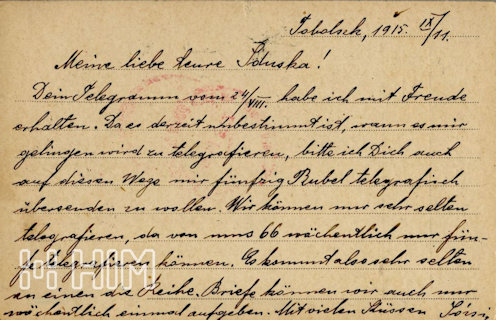 Tobolsk, 1915. IX/11.
Meine liebe teure Iduska!
Dein Telegramm vom 24/VIII. habe ich mit Freude
erhalten. Da es derzeit unbestimmt ist, wann es mir
gelingen wird zu telegrafieren, bitte ich Dich auch
auf diesem Wege mir fünfzig Rubel telegrafisch
übersenden zu wollen. Wir können nur sehr selten
telegrafieren, da von uns 66 wöchentlich nur fün-
fe telegrafieren können. Es kommt also sehr selten
an einen die Reihe. Briefe können wir auch nur
wöchentlich einmal aufgeben. Mit vielen Küssen
HIM